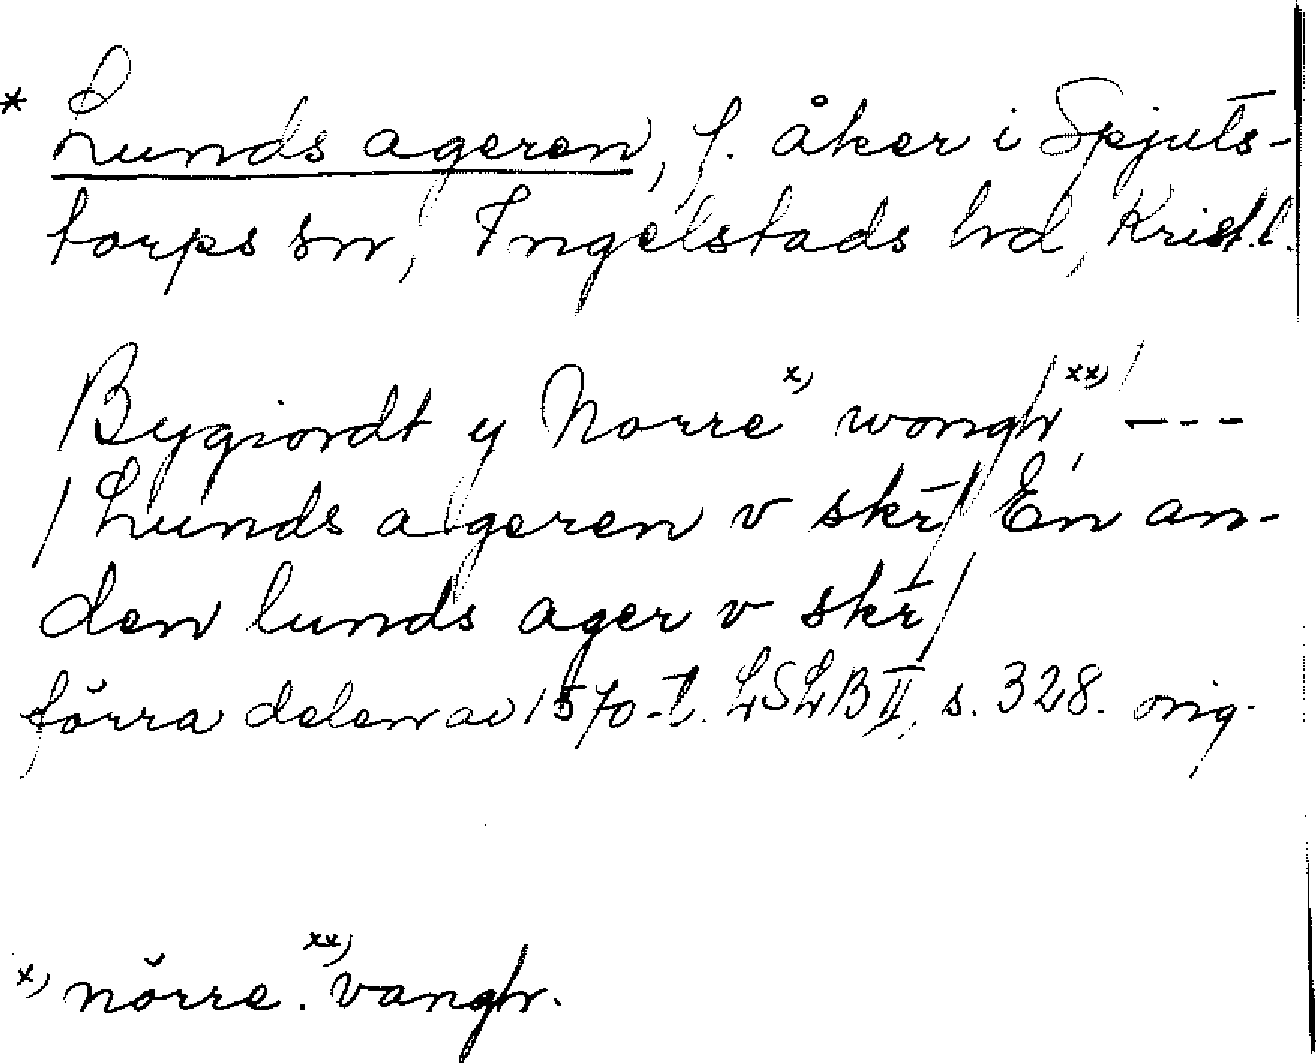 * Lunds ageren, f. åker i Spjuts-
torps sn, Ingelstads hd, Krist.l.
Bygiordt y Norre x) wongh xx) / ---
/ Lunds ageren v skr / En an-
den lunds ager v skr /
förra delen av 1570-t. LSLB II, s. 328. orig.
x) nörre. xx) vangh.